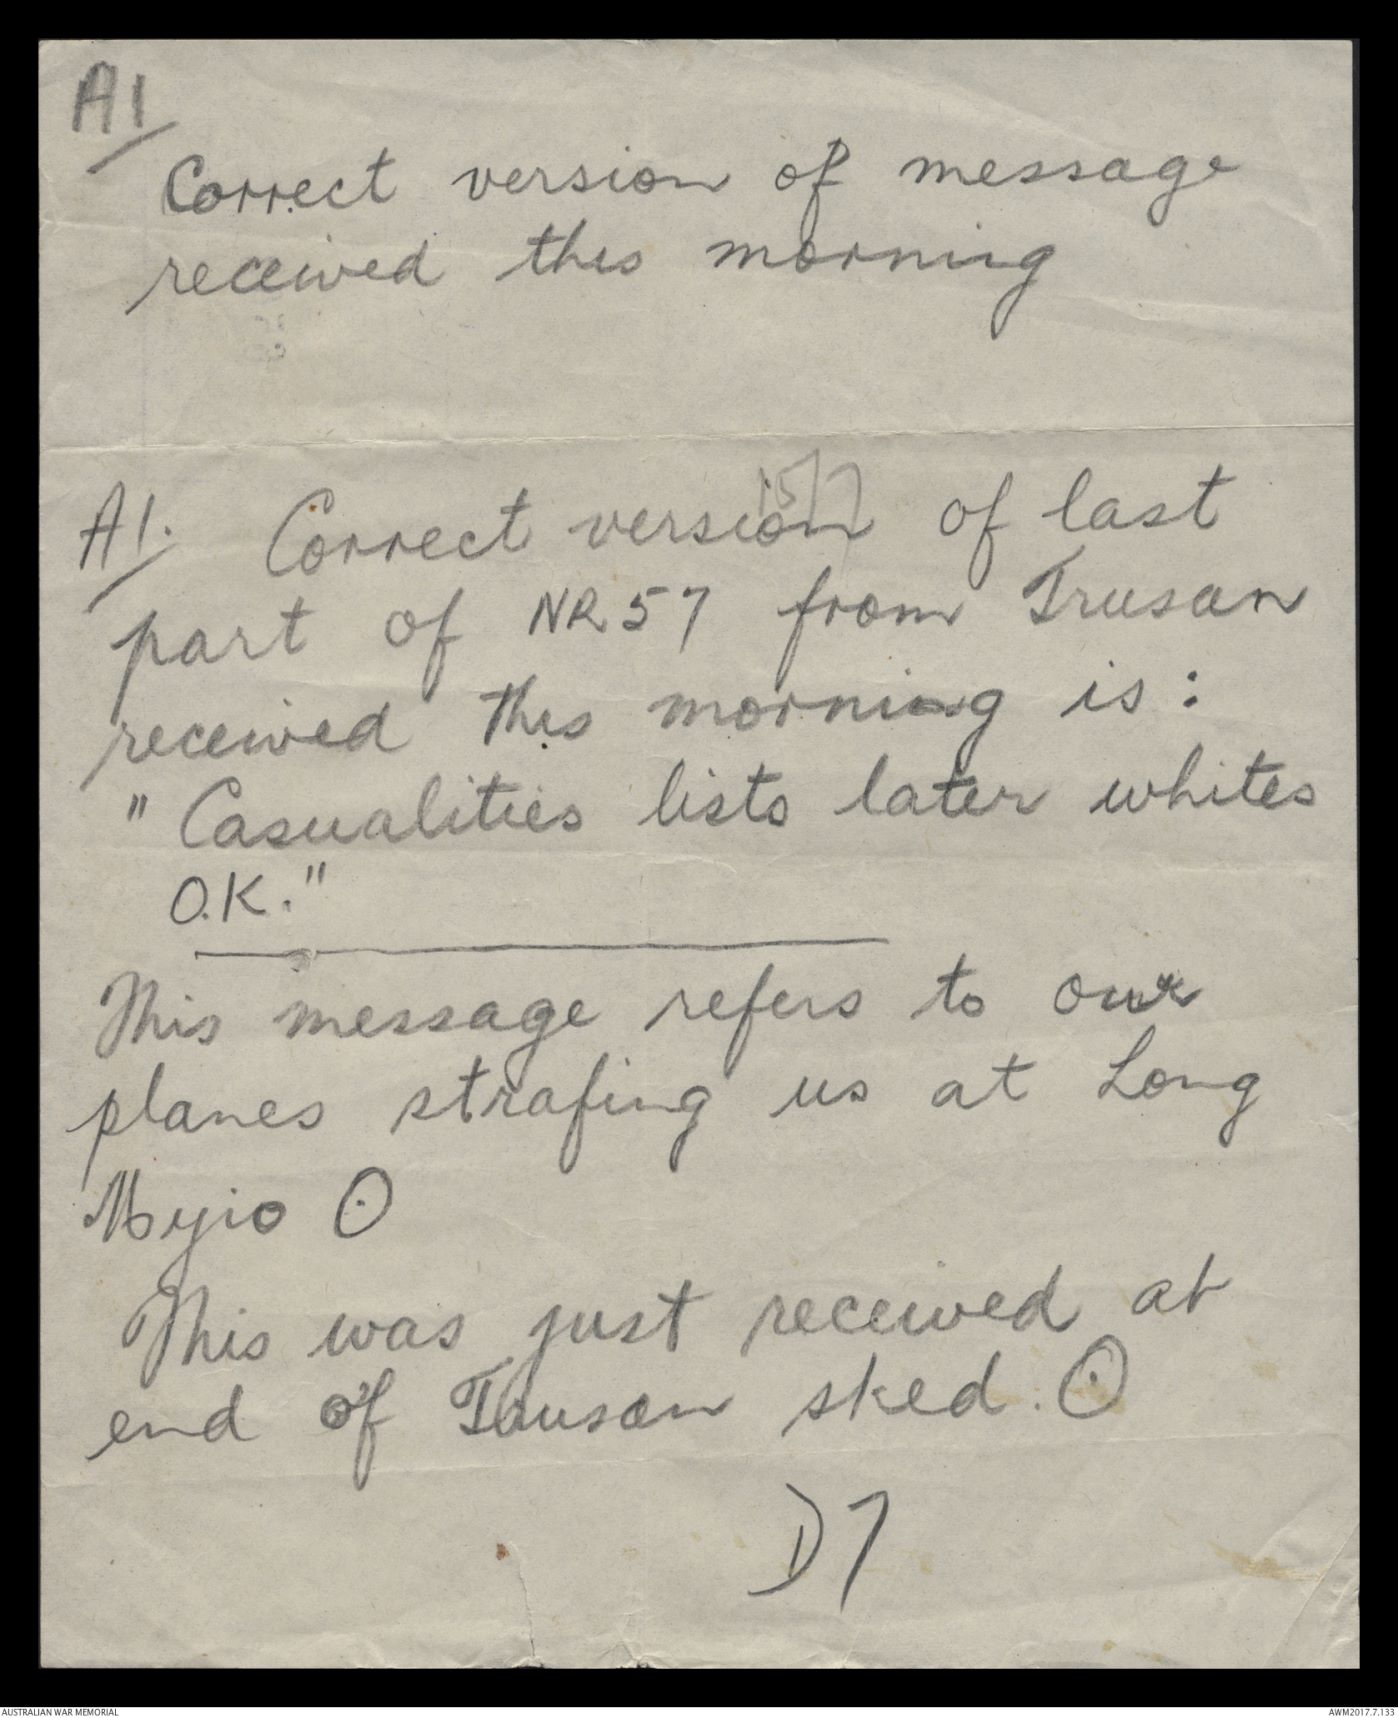 A1
Correct version of message
received this morning
15/7
A1. Correct version of last
part of NR 57 from Trusan
received this morning is:
"Casualities lists later whites
O.K."
This message refers to our
planes strafing us at Long
Myio ⊙
This was just received at
end of Trusan sked. ⊙
D7
AUSTRALIAN WAR MEMORIAL
AWM2017.7.133